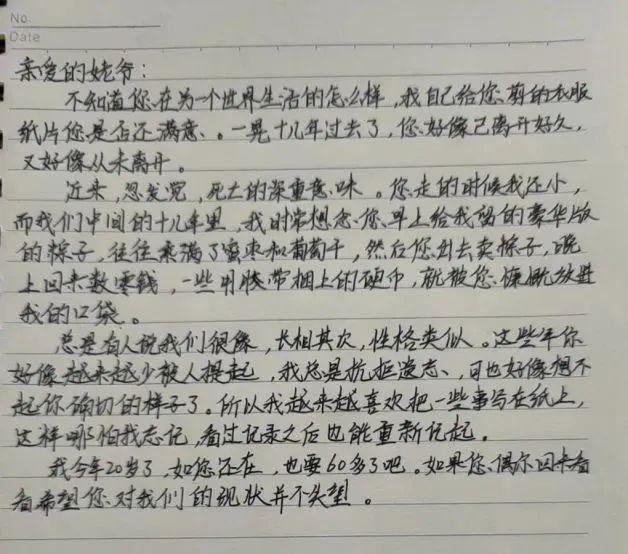 No.
Date
亲爱的姥爷：
不知道您在另一个世界生活的怎么样，我自己给您剪的衣服
纸片您是否还满意。一晃十几年过去了，您好像已离开好久，
又好像从未离开。
近来，忽发觉，死亡的深重意味。您走的时候我还小，
而我们中间的十几年里，我时常想念您早上给我留的豪华版
的粽子，往往裹满了蜜枣和葡萄干，然后您出去卖粽子，晚
上回来数零钱，一些用胶带捆上的硬币，就被您慷慨放进
我的口袋。
总是有人说我们很像，长相其次，性格类似。这些年你
好像越来越少被人提起，我总是抗拒遗忘、可也好像想不
起你确切的样子了。所以我越来越喜欢把一些事写在纸上，
这样哪怕我忘记，看过记录之后也能重新记起。
我今年20岁了，如您还在，也要60多了吧。如果您偶尔回来看
看希望您对我们的现状并不失望。